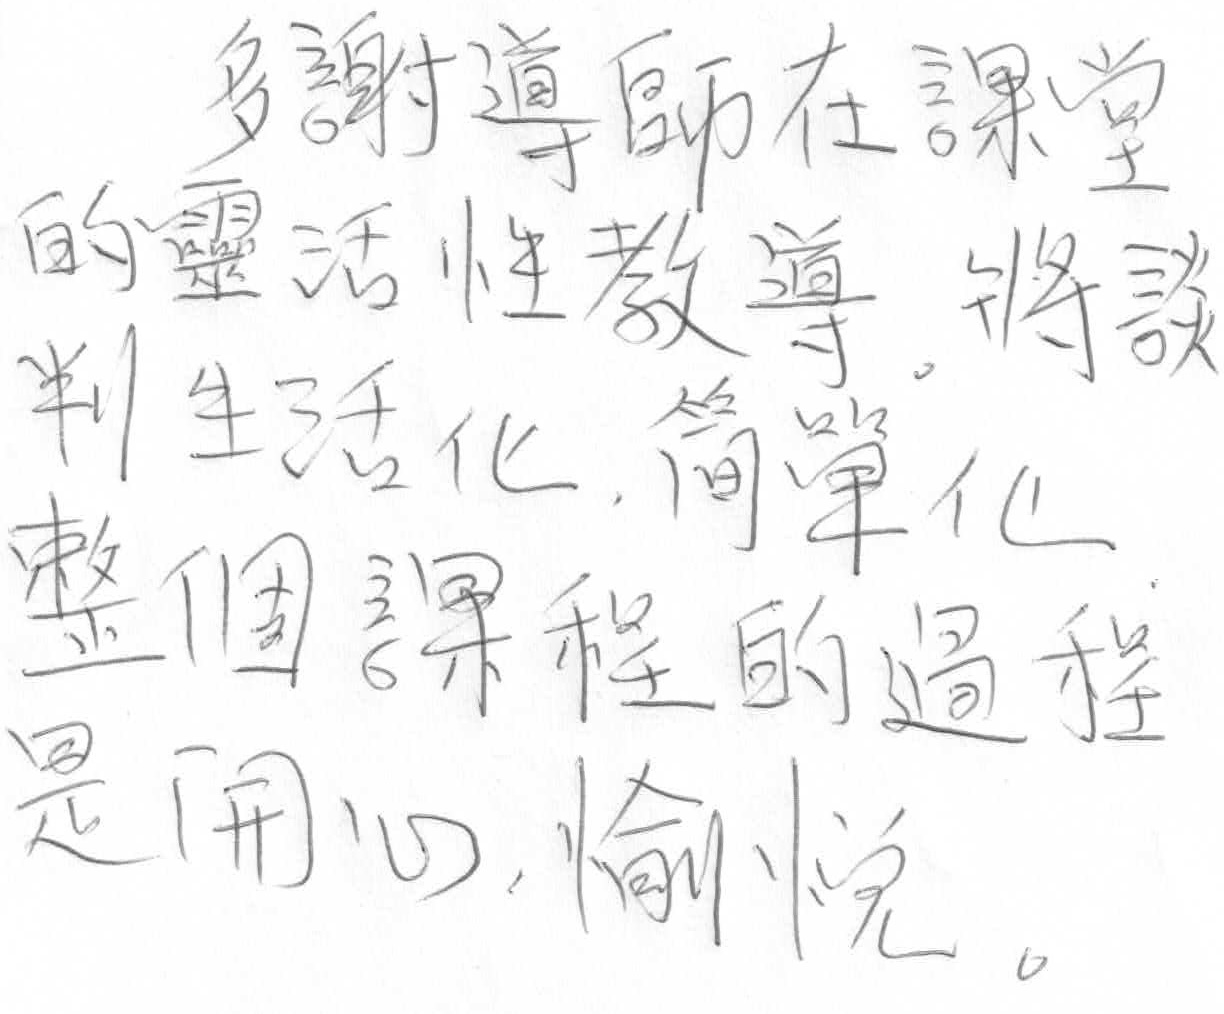 多謝導師在課堂
的靈活性教導。將談
判生活化、簡單化
整個課程的過程
是開心、愉悅。